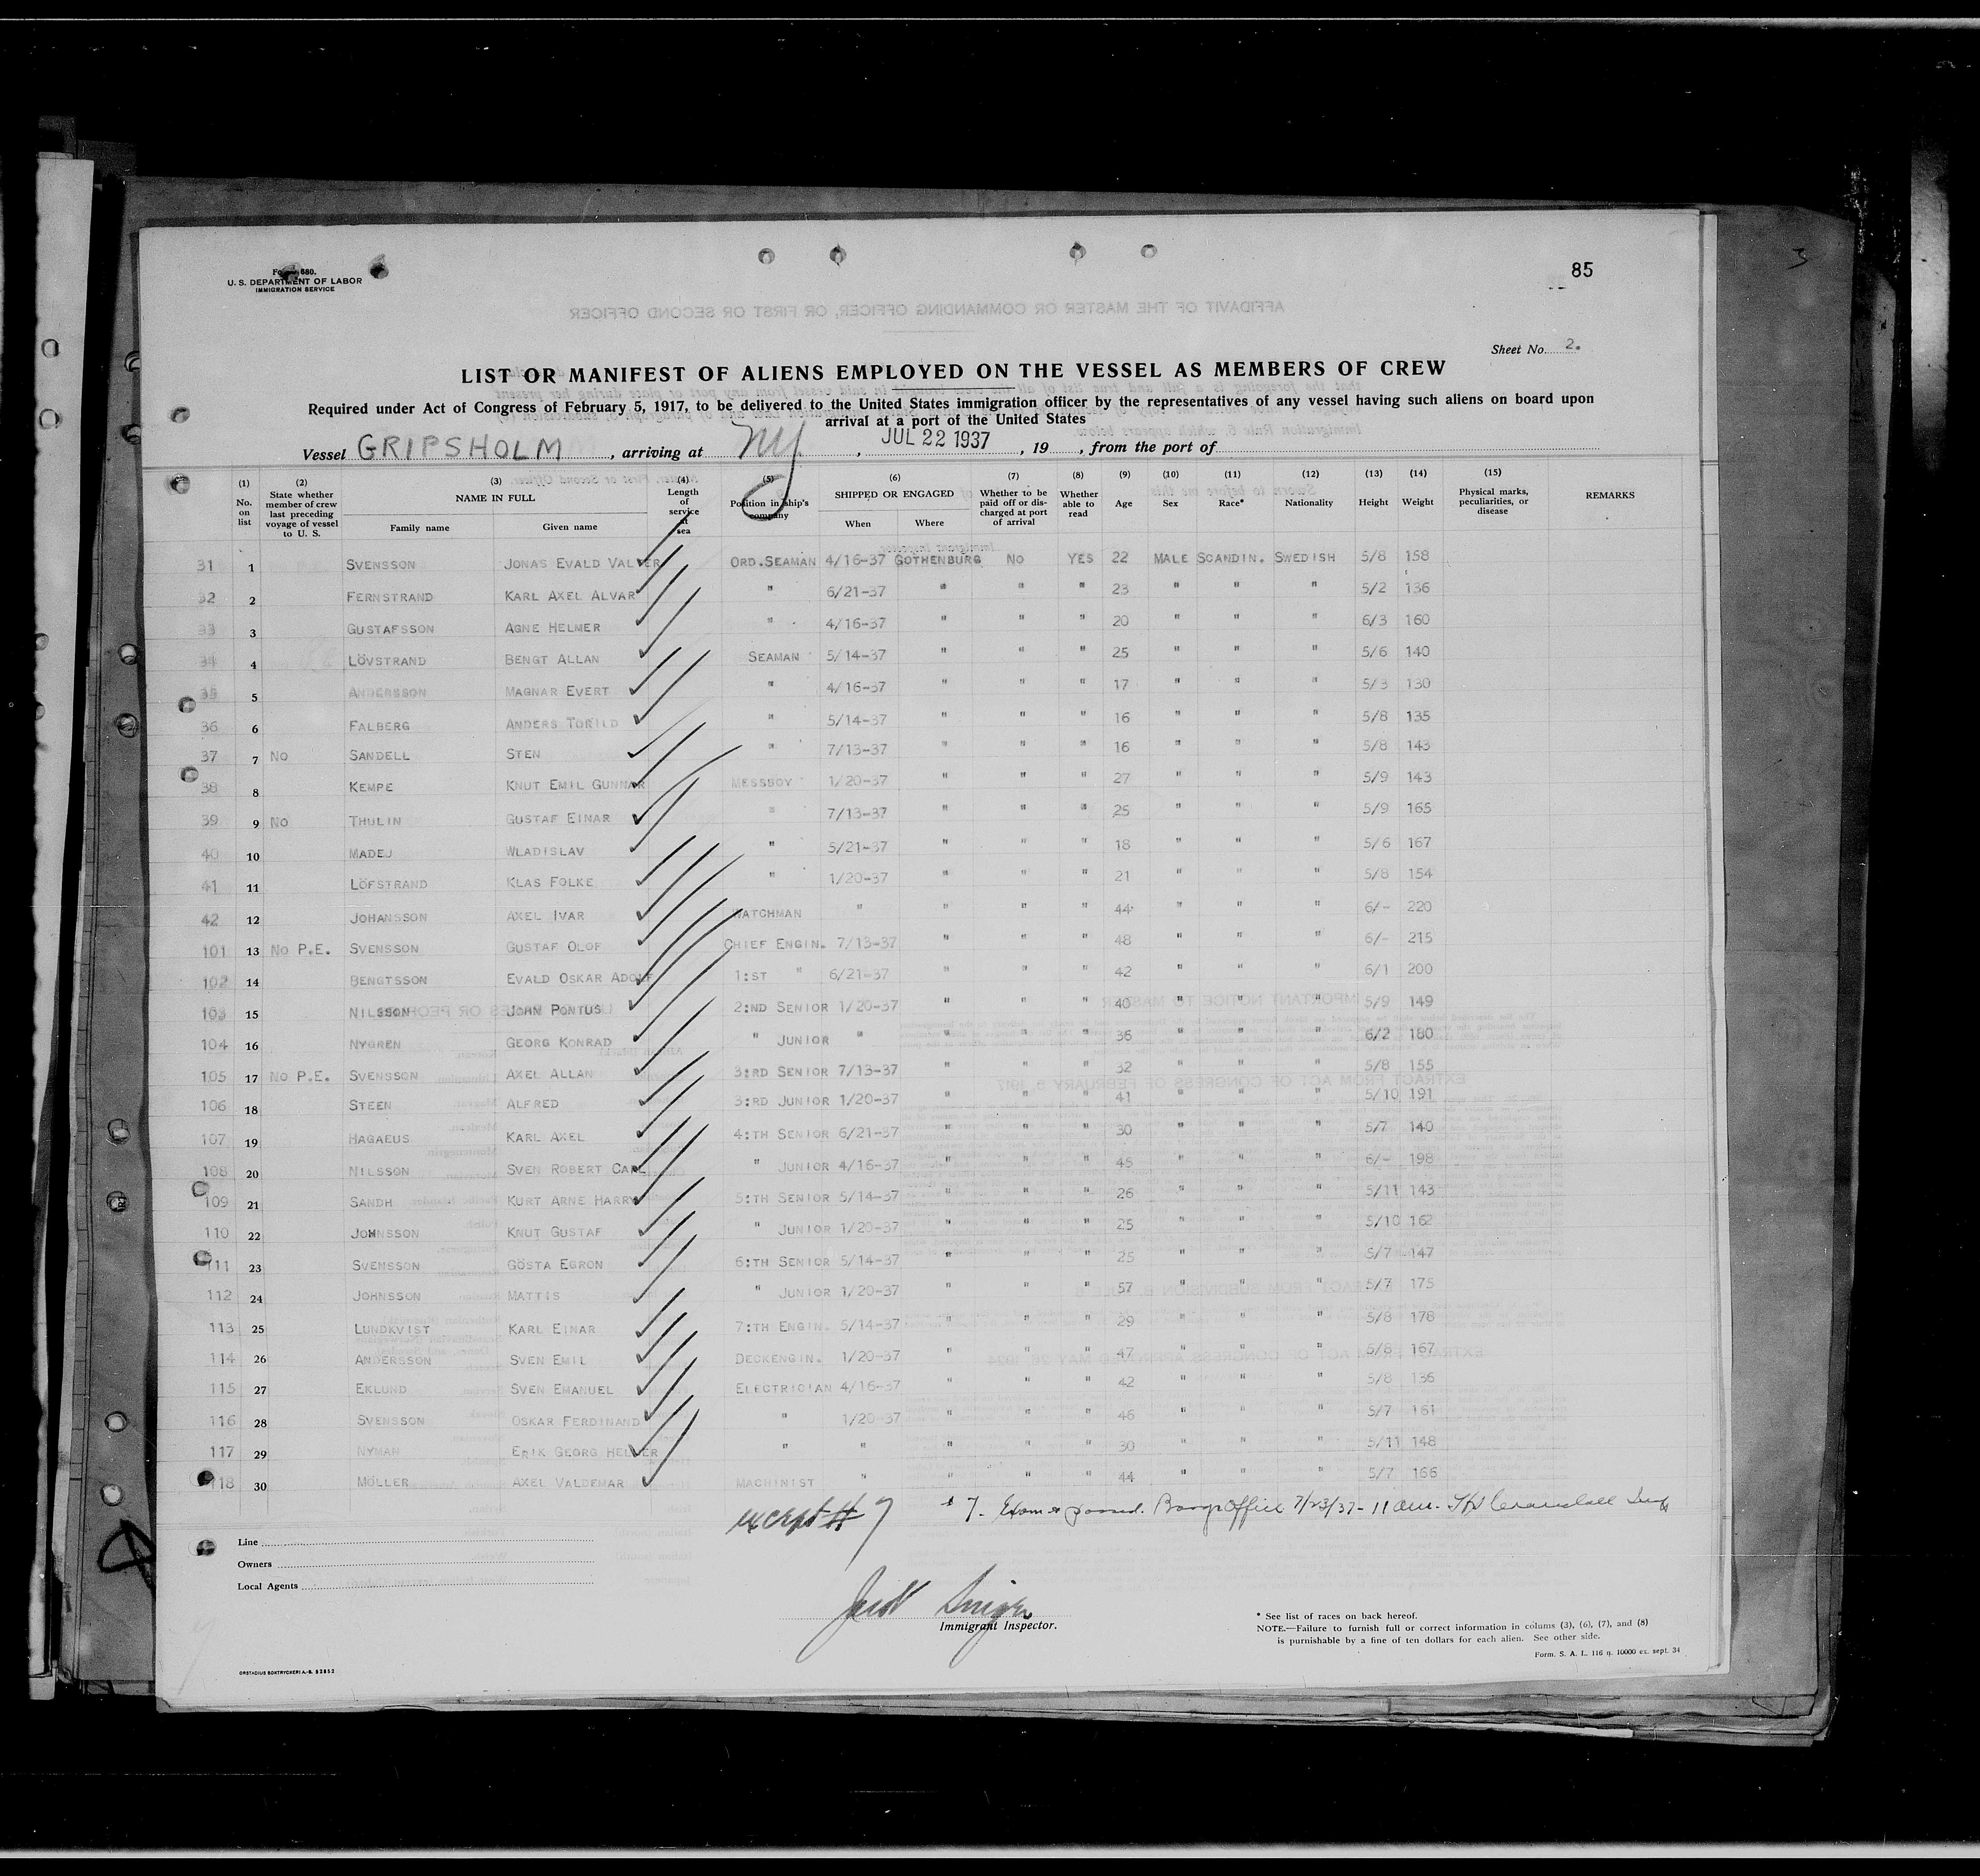 Form 680.
U. S. DEPARTMENT OF LABOR
IMMIGRATION SERVICE
85
Sheet No. 2.
LIST OR MANIFEST OF ALIENS EMPLOYED ON THE VESSEL AS MEMBERS OF CREW
Required under Act of Congress of February 5, 1917, to be delivered to the United States immigration officer by the representatives of any vessel having such aliens on board upon
arrival at a port of the United States
Vessel GRIPSHOLM, arriving at NY, JUL 22 1937, 19 , from the port of
(1) No. on list (2) State whether member of crew last preceding voyage of vessel to U. S. (3) NAME IN FULL Family name Given name (4) Length of service at sea (5) Position in ship's company (6) SHIPPED OR ENGAGED When Where (7) Whether to be paid off or discharged at port of arrival (8) Whether able to read (9) Age (10) Sex (11) Race* (12) Nationality (13) Height (14) Weight (15) Physical marks, peculiarities, or disease REMARKS
31 1 SVENSSON JONAS EVALD VALTER ORD.SEAMAN 4/16-37 GOTHENBURG NO YES 22 MALE SCANDIN. SWEDISH 5/8 158
32 2 FERNSTRAND KARL AXEL ALVAR " 6/21-37 " " " 23 " " " 5/2 136
33 3 GUSTAFSSON AGNE HELMER " 4/16-37 " " " 20 " " " 6/3 160
34 4 LÖVSTRAND BENGT ALLAN SEAMAN 5/14-37 " " " 25 " " " 5/6 140
35 5 ANDERSSON MAGNAR EVERT " 4/16-37 " " " 17 " " " 5/3 130
36 6 FALBERG ANDERS TORILD " 5/14-37 " " " 16 " " " 5/8 135
37 7 NO SANDELL STEN " 7/13-37 " " " 16 " " " 5/8 143
38 8 KEMPE KNUT EMIL GUNNAR MESSBOY 1/20-37 " " " 27 " " " 5/9 143
39 9 NO THULIN GUSTAF EINAR " 7/13-37 " " " 25 " " " 5/9 165
40 10 MADEJ WLADISLAV " 5/21-37 " " " 18 " " " 5/6 167
41 11 LÖFSTRAND KLAS FOLKE " 1/20-37 " " " 21 " " " 5/8 154
42 12 JOHANSSON AXEL IVAR WATCHMAN " " " " 44 " " " 6/- 220
101 13 NO P.E. SVENSSON GUSTAF OLOF CHIEF ENGIN. 7/13-37 " " " 48 " " " 6/- 215
102 14 BENGTSSON EVALD OSKAR ADOLF 1:ST " 6/21-37 " " " 42 " " " 6/1 200
103 15 NILSSON JOHN PONTUS 2:ND SENIOR 1/20-37 " " " 40 " " " 5/9 149
104 16 NYGREN GEORG KONRAD " JUNIOR " " " " 36 " " " 6/2 180
105 17 NO P.E. SVENSSON AXEL ALLAN 3:RD SENIOR 7/13-37 " " " 32 " " " 5/8 155
106 18 STEEN ALFRED 3:RD JUNIOR 1/20-37 " " " 41 " " " 5/10 191
107 19 HAGAEUS KARL AXEL 4:TH SENIOR 6/21-37 " " " 30 " " " 5/7 140
108 20 NILSSON SVEN ROBERT CARL " JUNIOR 4/16-37 " " " 45 " " " 6/- 198
109 21 SANDH KURT ARNE HARRY 5:TH SENIOR 5/14-37 " " " 26 " " " 5/11 143
110 22 JOHNSSON KNUT GUSTAF " JUNIOR 1/20-37 " " " 25 " " " 5/10 162
111 23 SVENSSON GÖSTA EGRON 6:TH SENIOR 5/14-37 " " " 25 " " " 5/7 147
112 24 JOHNSSON MATTIS " JUNIOR 1/20-37 " " " 57 " " " 5/7 175
113 25 LUNDKVIST KARL EINAR 7:TH ENGIN. 5/14-37 " " " 29 " " " 5/8 178
114 26 ANDERSSON SVEN EMIL DECKENGIN. 1/20-37 " " " 47 " " " 5/8 167
115 27 EKLUND SVEN EMANUEL ELECTRICIAN 4/16-37 " " " 42 " " " 5/8 136
116 28 SVENSSON OSKAR FERDINAND " 1/20-37 " " " 46 " " " 5/7 161
117 29 NYMAN ERIK GEORG HELMER " " " " " 30 " " " 5/11 148
118 30 MÖLLER AXEL VALDEMAR MACHINIST " " " " 44 " " " 5/7 166
except # 7
# 7. Exam & passed. Barge Office 7/23/37 - 11 am.
Line
Owners
Local Agents
Immigrant Inspector.
* See list of races on back hereof.
NOTE.—Failure to furnish full or correct information in colums (3), (6), (7), and (8)
is punishable by a fine of ten dollars for each alien. See other side.
Form. S. A. L. 116 q. 10000 ex. sept. 34
ORSTADIUS BOKTRYCKERI A.-B. 52852